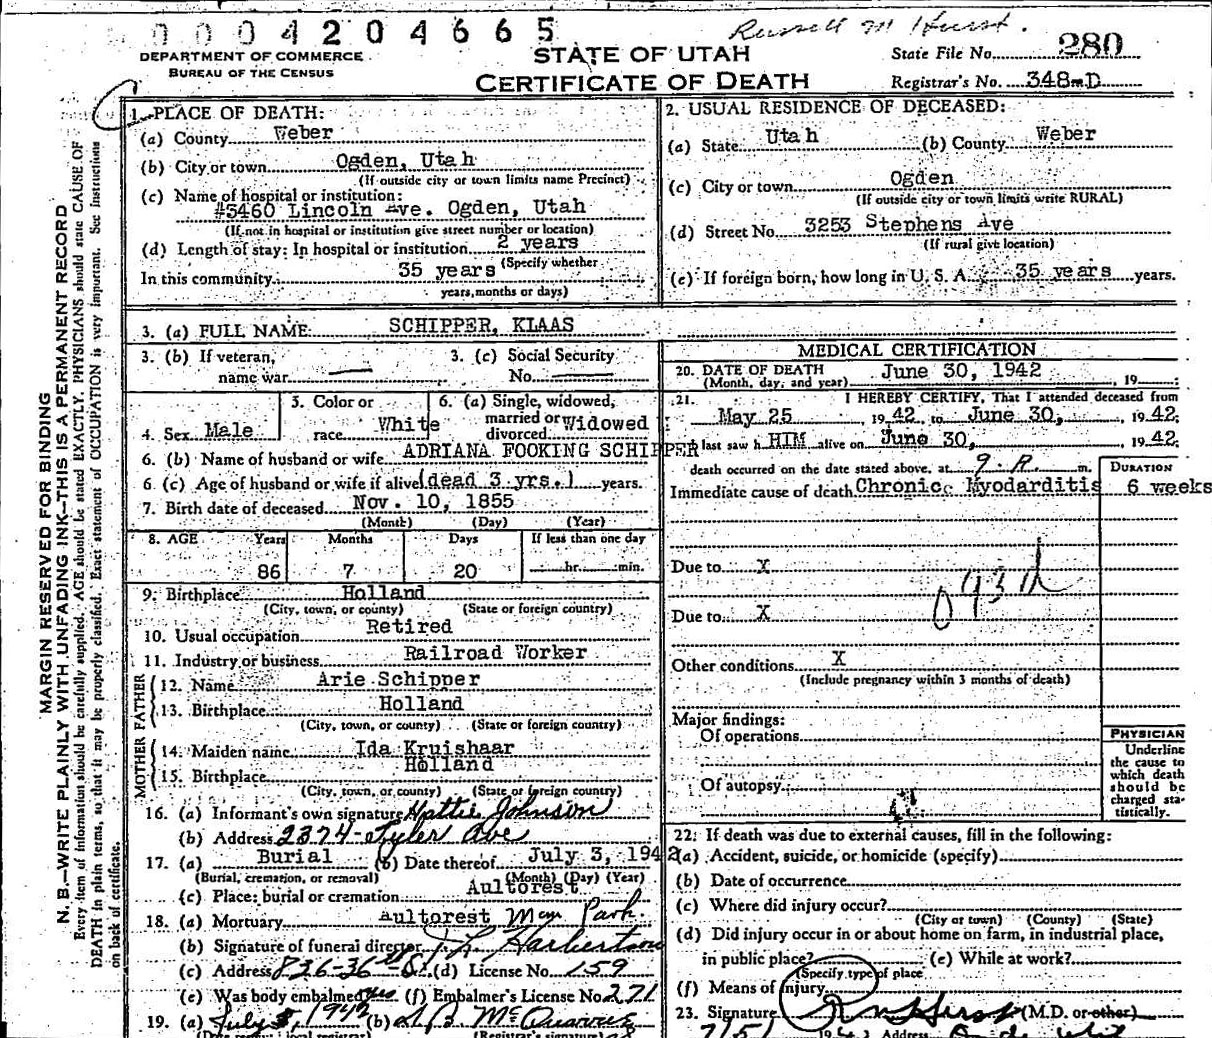 0004204665
Russell M Hurst.
DEPARTMENT OF COMMERCE
BUREAU OF THE CENSUS
STATE OF UTAH
CERTIFICATE OF DEATH
State File No. 280
Registrar's No. 348-D
MARGIN RESERVED FOR BINDING
N. B.—WRITE PLAINLY WITH UNFADING INK—THIS IS A PERMANENT RECORD
Every item of information should be carefully supplied. AGE should be stated EXACTLY. PHYSICIANS should state CAUSE OF
DEATH in plain terms, so that it may be properly classified. Exact statement of OCCUPATION is very important. See Instructions
on back of certificate.
1. PLACE OF DEATH:
(a) County Weber
(b) City or town Ogden, Utah
(If outside city or town limits name Precinct)
(c) Name of hospital or institution:
#3460 Lincoln Ave. Ogden, Utah
(If not in hospital or institution give street number or location)
(d) Length of stay: In hospital or institution 2 years
(Specify whether
In this community 35 years
years, months or days)
2. USUAL RESIDENCE OF DECEASED:
(a) State Utah (b) County Weber
(c) City or town Ogden
(If outside city or town limits write RURAL)
(d) Street No. 3253 Stephens Ave
(If rural give location)
(e) If foreign born, how long in U. S. A. 35 years years.
3. (a) FULL NAME: SCHIPPER, KLAAS
3. (b) If veteran,
name war
3. (c) Social Security
No.
4. Sex Male
5. Color or
race White
6. (a) Single, widowed,
married or
divorced Widowed
6. (b) Name of husband or wife ADRIANA FOOKING SCHIPPER
6. (c) Age of husband or wife if alive (dead 3 yrs.) years.
7. Birth date of deceased Nov. 10, 1855
(Month) (Day) (Year)
8. AGE Years Months Days If less than one day
86 7 20 hr. min.
9. Birthplace Holland
(City, town, or county) (State or foreign country)
10. Usual occupation Retired
11. Industry or business Railroad Worker
FATHER
12. Name Arie Schipper
13. Birthplace Holland
(City, town, or county) (State or foreign country)
MOTHER
14. Maiden name Ida Kruishaar
15. Birthplace Holland
(City, town, or county) (State or foreign country)
16. (a) Informant's own signature Hattie Johnson
(b) Address 2374-Tyler Ave
17. (a) Burial (b) Date thereof July 3, 1942
(Burial, cremation, or removal) (Month) (Day) (Year)
(c) Place: burial or cremation Aultorest
18. (a) Mortuary Aultorest Mem Park.
(b) Signature of funeral director
(c) Address 836-36th St. (d) License No. 159
(e) Was body embalmed yes (f) Embalmer's License No. 271
19. (a) July 5, 1942 (b)
(Registrar's signature)
MEDICAL CERTIFICATION
20. DATE OF DEATH
(Month, day, and year) June 30, 1942, 19
21. I HEREBY CERTIFY, That I attended deceased from
May 25, 1942, to June 30, 1942.
last saw h HIM alive on June 30, 1942.
death occurred on the date stated above, at 9 P. m.
DURATION
Immediate cause of death Chronic Myodarditis 6 weeks
Due to X
Due to X
Other conditions X
(Include pregnancy within 3 months of death)
Major findings:
Of operations
Of autopsy
PHYSICIAN
Underline
the cause to
which death
should be
charged sta-
tistically.
22. If death was due to external causes, fill in the following:
(a) Accident, suicide, or homicide (specify)
(b) Date of occurrence
(c) Where did injury occur?
(City or town) (County) (State)
(d) Did injury occur in or about home on farm, in industrial place,
in public place? (e) While at work?
(Specify type of place
(f) Means of injury
23. Signature (M.D. or other)
Address